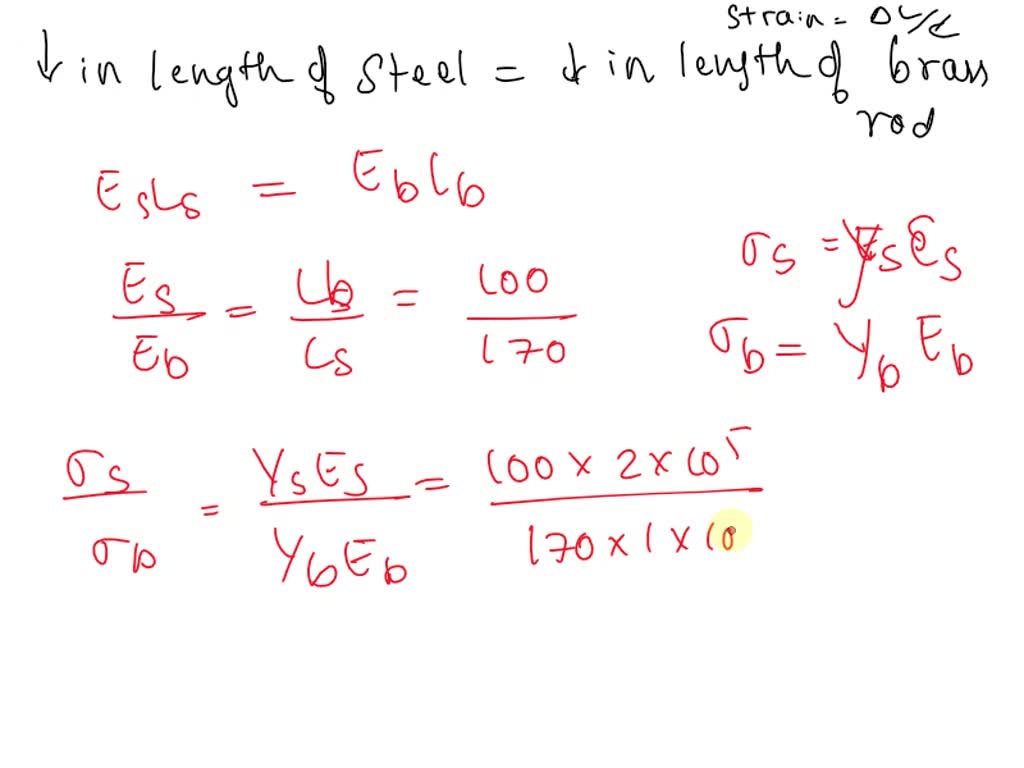 strain = ΔL/L
↓ in length of steel = ↓ in length of brass rod
EsLs = EbLb
Es/Eb = Lb/Ls = 100/170
σs = YsEs
σb = YbEb
σs/σb = YsEs/YbEb = 100 × 2 × 10^5/170 × 1 × 10